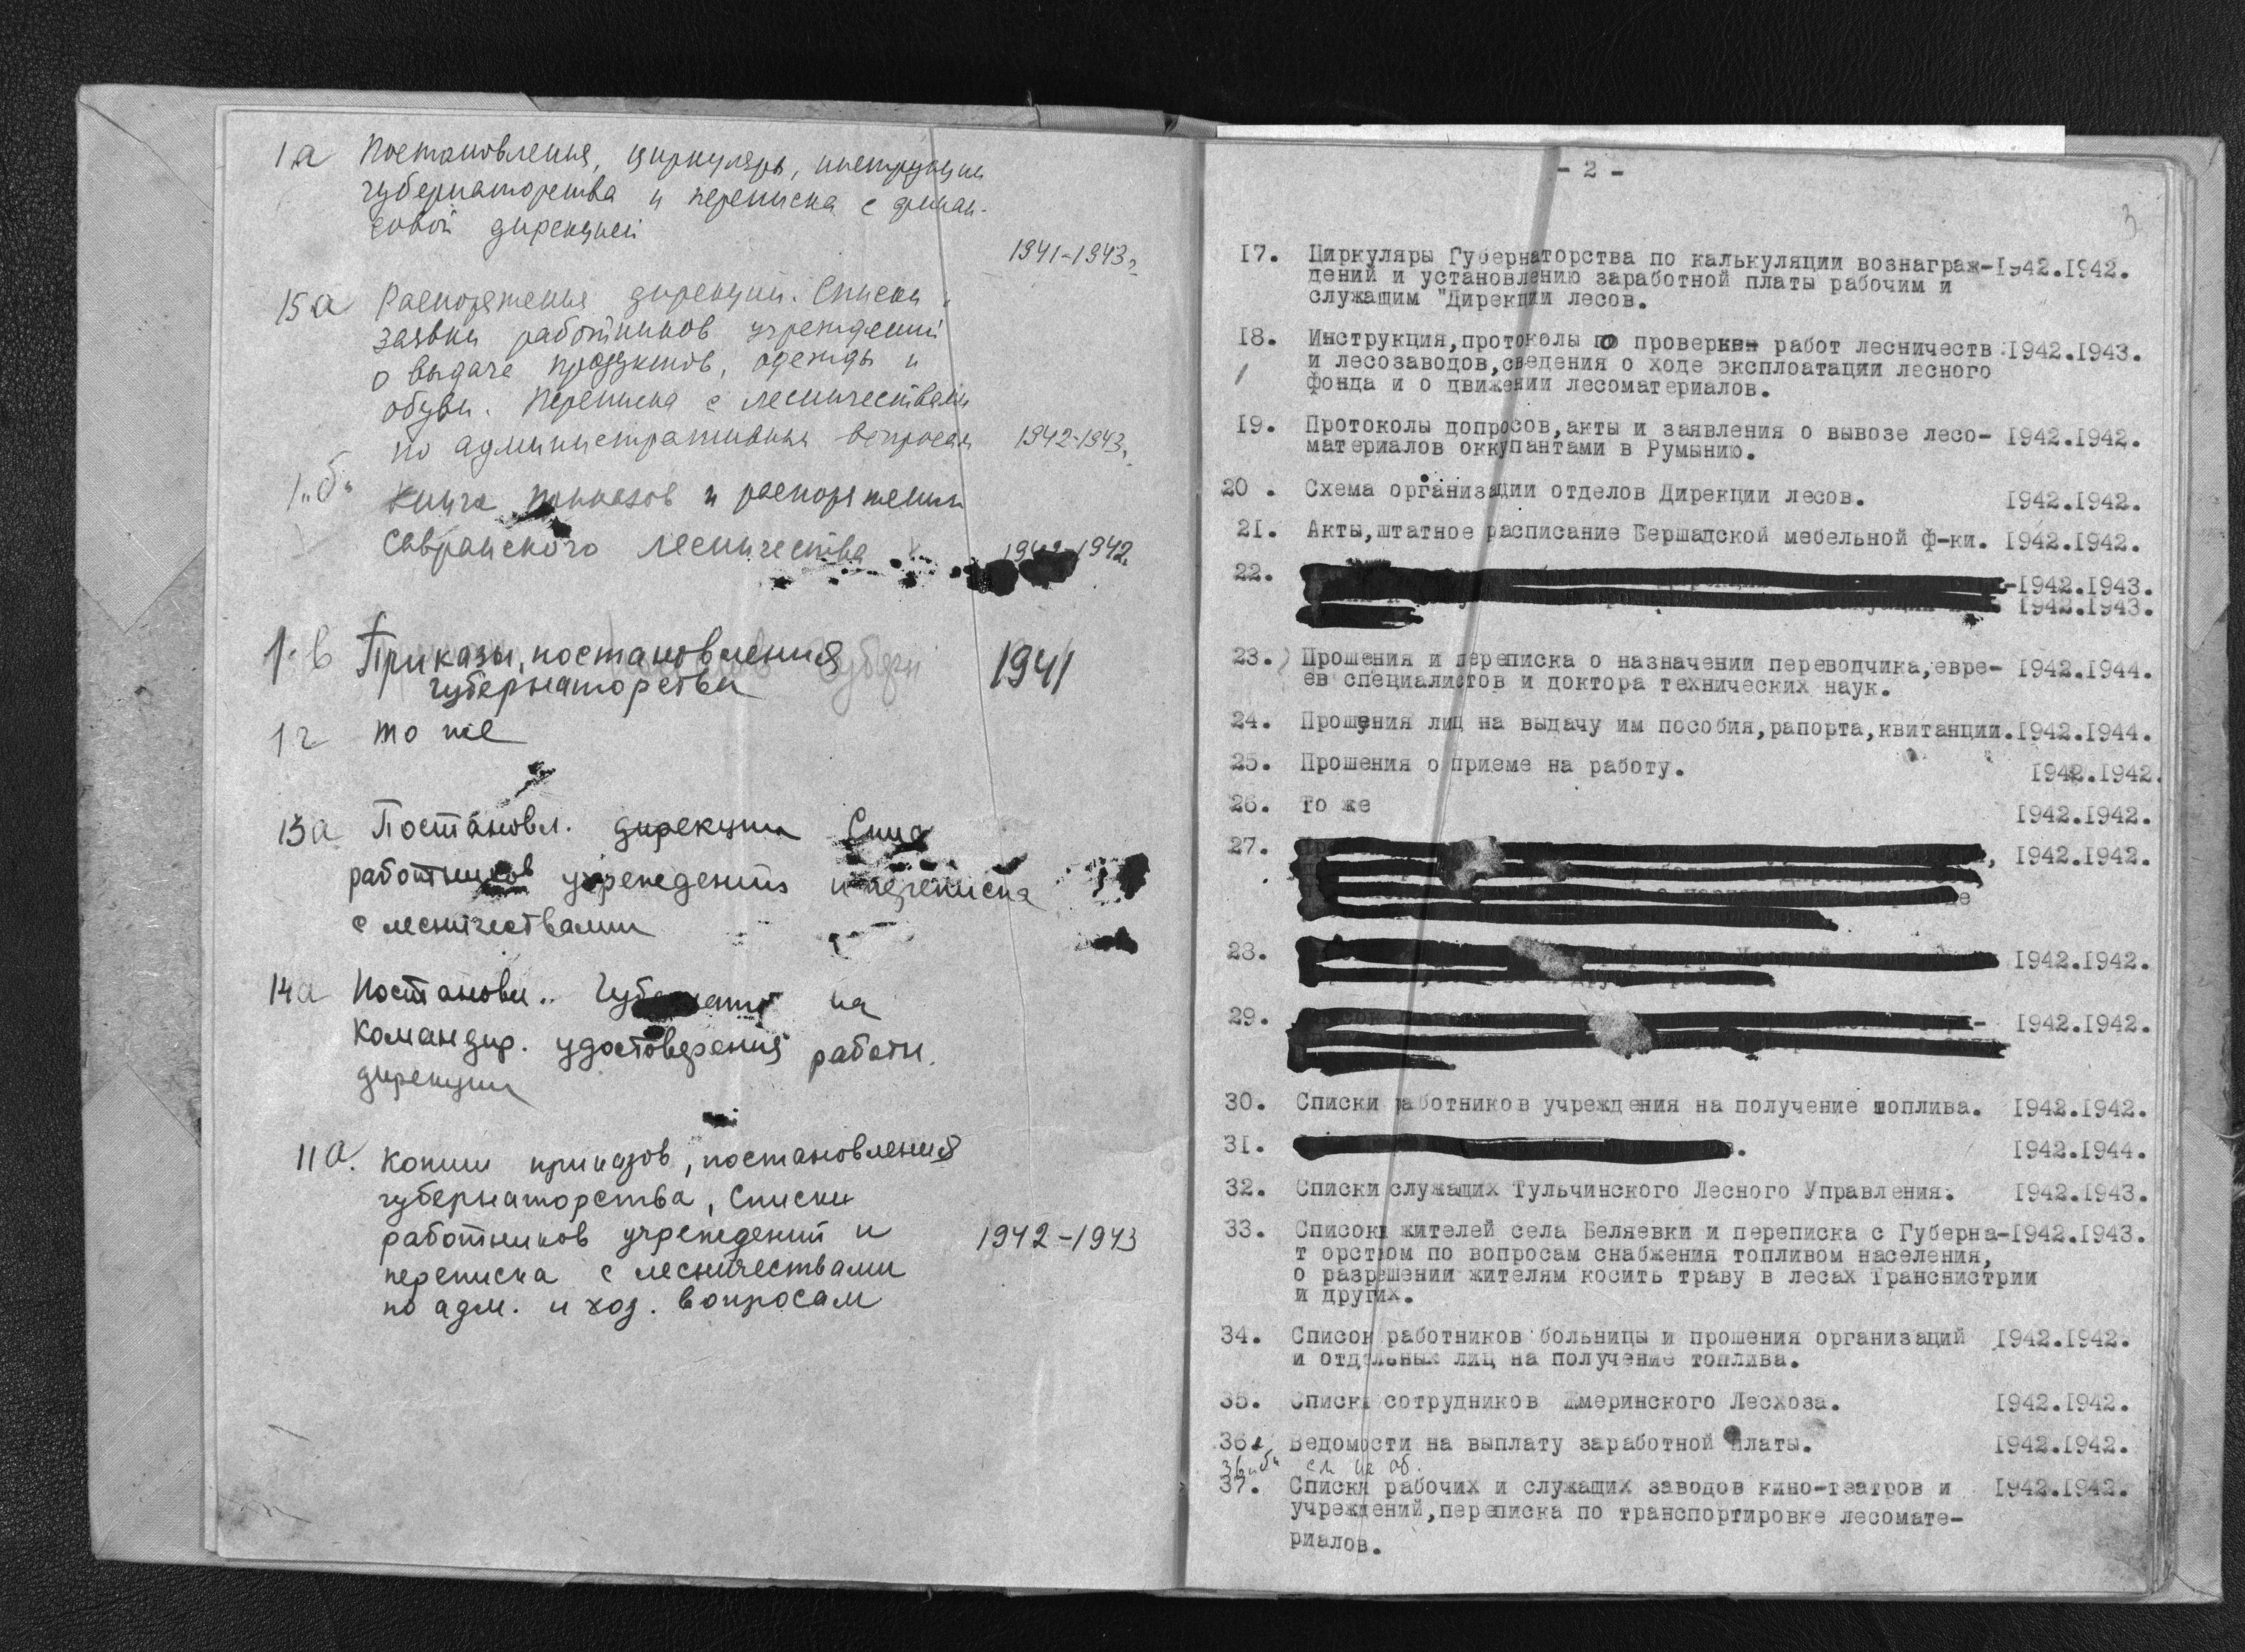 1а Постановления, циркуляры, инструкции
губернаторства и переписка с финан-
совой дирекцией
1941-1943г
15а Распоряжения дирекции. Списки,
заявки работников учреждений
о выдаче продуктов, одежды и
обуви. Переписка с лесничествами
по административным вопросам 1942-1943г.
1"б" Книга приказов и распоряжений
Савранского лесничества 1942-1942.
1.в Приказы, постановления 1941
губернаторства
1г то же
13а Постановл. дирекции
работников учреждений и переписка
с лесничествами
14а Постановл. на
командир. удостоверения работн.
дирекции
11а. Копии приказов, постановления
губернаторства, списки
работников учреждений и 1942-1943
переписка с лесничествами
по адм. и хоз. вопросам
- 2 -
3
I7. Циркуляры Губернаторства по калькуляции вознаграж-I942.I942.
дений и установлению заработной платы рабочим и
служащим "Дирекции лесов.
I8. Инструкция,протоколы по проверке работ лесничеств I942.I943.
и лесозаводов,сведения о ходе эксплоатации лесного
фонда и о движении лесоматериалов.
I9. Протоколы допросов,акты и заявления о вывозе лесо- I942.I942.
материалов оккупантами в Румынию.
20 . Схема организации отделов Дирекции лесов. I942.I942.
2I. Акты,штатное расписание Бершадской мебельной ф-ки. I942.I942.
22. -I942.I943.
I942.I943.
23. Прошения и переписка о назначении переводчика,евре- I942.I944.
ев специалистов и доктора технических наук.
24. Прошения лиц на выдачу им пособия,рапорта,квитанции.I942.I944.
25. Прошения о приеме на работу. I942.I942.
26. То же I942.I942.
27. , I942.I942.
28. I942.I942.
29. I942.I942.
30. Списки работников учреждения на получение топлива. I942.I942.
3I. . I942.I944.
32. Списки служащих Тульчинского Лесного Управления. I942.I943.
33. Списоки жителей села Беляевки и переписка с Губерна-I942.I943.
т орством по вопросам снабжения топливом населения,
о разрешении жителям косить траву в лесах Транснистрии
и других.
34. Список работников больницы и прошения организаций I942.I942.
и отдельных лиц на получение топлива.
35. Списки сотрудников Жмеринского Лесхоза. I942.I942.
36а Ведомости на выплату заработной платы. I942.I942.
36"б" см на об.
37. Списки рабочих и служащих заводов кино-театров и I942.I942.
учреждений,переписка по транспортировке лесомате-
риалов.